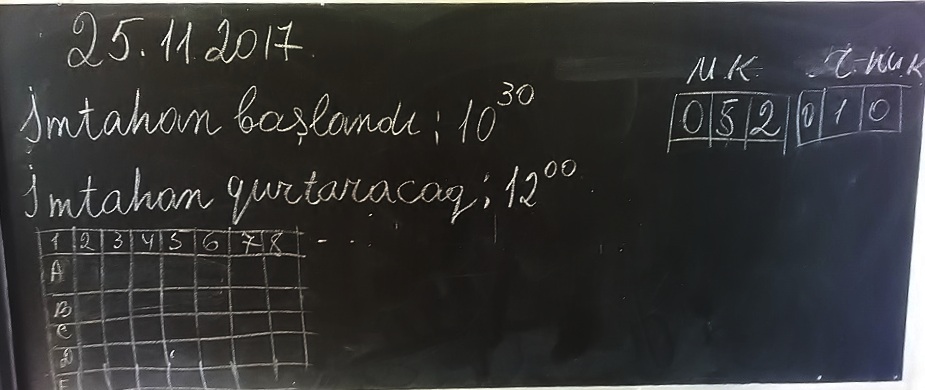 25.11.2017.
İmtahan başlandı; 10³⁰
İmtahan qurtaracaq; 12⁰⁰
М.К.
0 5 2 0 1 0
1 2 3 4 5 6 7 8 - ...
A
B
C
D
E